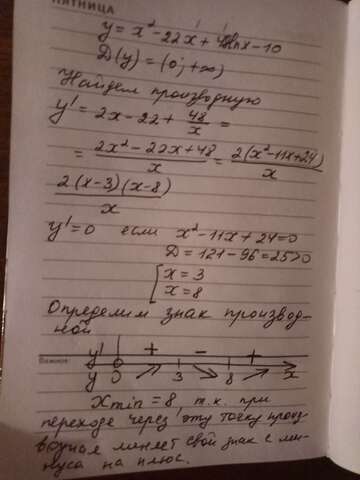 ПЯТНИЦА
y = x² - 22x + 48lnx - 10
D(y) = (0; +∞)
Найдем производную
y' = 2x - 22 + 48/x =
= (2x² - 22x + 48)/x = 2(x² - 11x + 24)/x
2(x-3)(x-8)/x
y' = 0 если x² - 11x + 24 = 0
D = 121 - 96 = 25 > 0
[x = 3
x = 8
Определим знак производ-
ной
y' + - +
Важное:
y 0 ↗ 3 ↘ 8 ↗ x
xmin = 8, т.к. при
переходе через эту точку произ-
водная меняет свой знак с ми-
нуса на плюс.